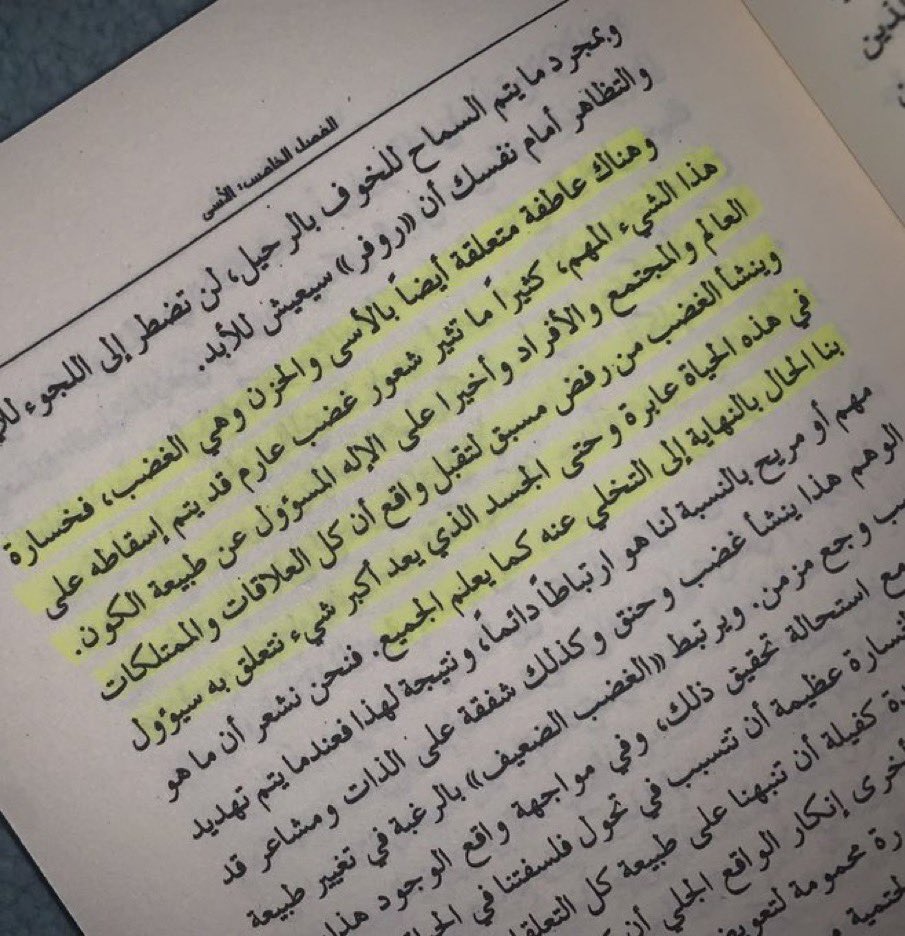 الفصل الخامس: الأسى
وبمجرد ما يتم السماح للخوف بالرحيل، لن تضطر إلى اللجوء
والتظاهر أمام نفسك أن «روفر» سيعيش للأبد.
وهناك عاطفة متعلقة أيضاً بالأسى والحزن وهي الغضب، فخسارة
هذا الشيء المهم، كثيراً ما تثير شعور غضب عارم قد يتم إسقاطه على
العالم والمجتمع والأفراد وأخيرا على الإله المسؤول عن طبيعة الكون.
وينشأ الغضب من رفض مسبق لتقبل واقع أن كل العلاقات والممتلكات
في هذه الحياة عابرة وحتى الجسد الذي يعد أكبر شيء نتعلق به سيؤول
بنا الحال بالنهاية إلى التخلي عنه كما يعلم الجميع. فنحن نشعر أن ما هو
مهم أو مريح بالنسبة لنا هو ارتباطاً دائماً، ونتيجة لهذا فعندما يتم تهديد
الوهم هذا ينشأ غضب وحنق وكذلك شفقة على الذات ومشاعر قد
وجع مزمن. ويرتبط «الغضب الضعيف» بالرغبة في تغيير طبيعة
مع استحالة تحقيق ذلك، وفي مواجهة واقع الوجود هذا
عظيمة أن تتسبب في تحول فلسفتنا في
كفيلة أن تنبهنا على طبيعة كل
أخرى إنكار الواقع الجلي أن
محمومة
الذين